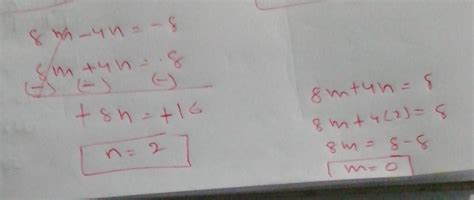 8m-4n=-8
8m+4n=8
(-) (-) (-)
+8n=+16
n=2
8m+4n=8
8m+4(2)=8
8m=8-8
m=0